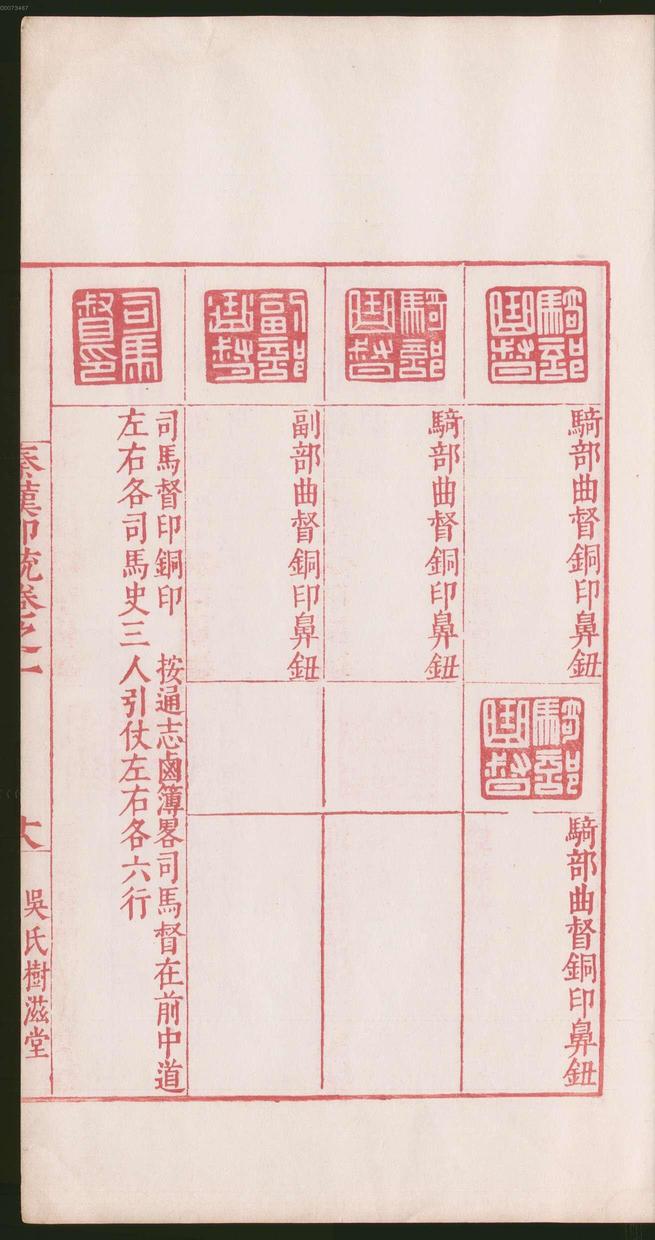 騎部曲督
騎部曲督銅印鼻鈕
騎部曲督
騎部曲督銅印鼻鈕
騎部曲督
騎部曲督銅印鼻鈕
副部曲督
副部曲督銅印鼻鈕
司馬督印
司馬督印銅印　按通志鹵簿畧司馬督在前中道
左右各司馬史三人引仗左右各六行
秦漢印統卷之一
吳氏樹滋堂
00073467